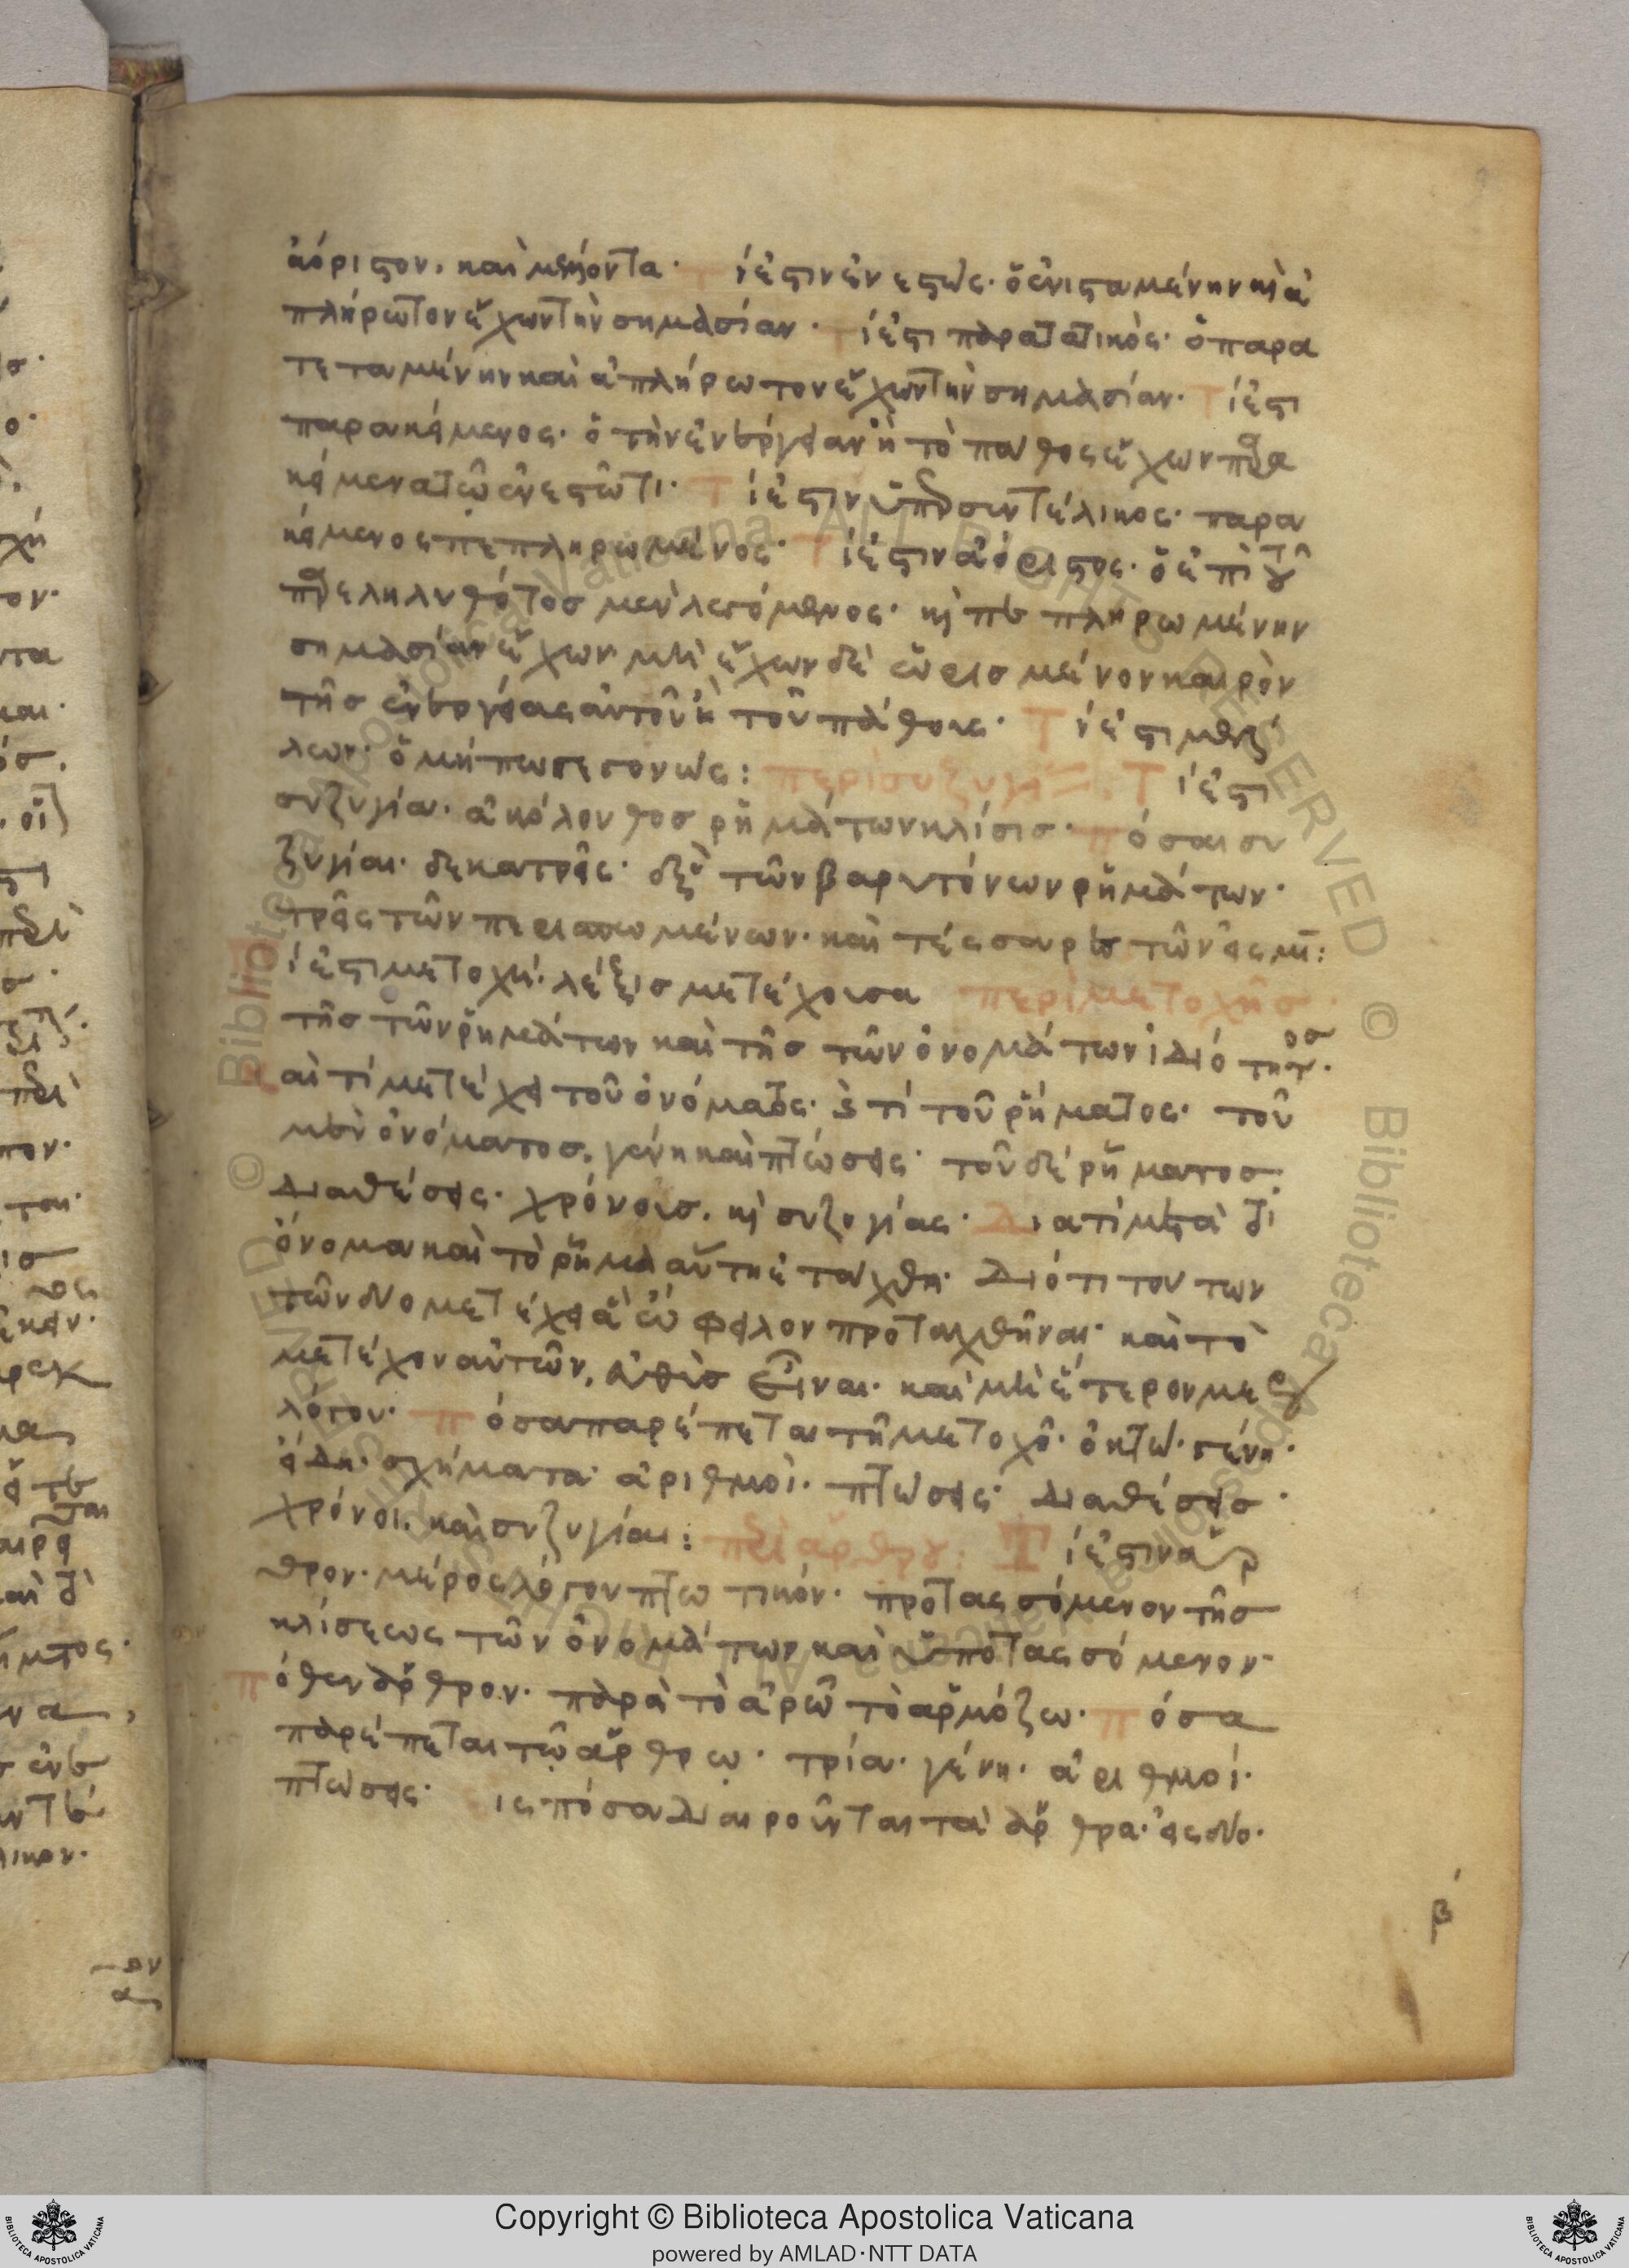 ἀόριστον. καὶ μέλλοντα· Τί ἐστιν ἐνεστώς· ὁ ἐνισταμένην κ(αὶ) ἀ
πλήρωτον ἔχων τὴν σημασίαν· Τί ἐστι παρατατικός· ὁ παρα
τεταμένην καὶ ἀπλήρωτον ἔχων τὴν σημασίαν· Τί ἐστι
παρακείμενος· ὁ τὴν ἐνέργειαν ἢ τὸ πάθος ἔχων παρα
κείμενα τῷ ἐνεστῶτι· Τί ἐστιν ὑπερσυντέλικος· παρα
κείμενος πεπληρωμένος· Τί ἐστιν ἀόριστος· ὁ ἐπὶ τοῦ
παρεληλυθότος μὲν λεγόμενος· κ(αὶ) πεπληρωμένην
σημασίαν ἔχων· μὴ ἔχων δὲ ὡρισμένον καιρὸν
τῆς ἐνεργείας αὐτοῦ ἢ τοῦ πάθους· Τί ἐστι μέλ
λων· ὁ μήπω γεγονώς: περὶ συζυγίας. Τί ἐστι
συζυγία· ἀκόλουθος ῥημάτων κλίσις· πόσαι συ
ζυγίαι· δεκατρεῖς· ἓξ τῶν βαρυτόνων ῥημάτων·
τρεῖς τῶν περισπωμένων· καὶ τέσσαρες τῶν εἰς μι:
Τί ἐστι μετοχή· λέξις μετέχουσα περὶ μετοχῆς·
τῆς τῶν ῥημάτων καὶ τῆς τῶν ὀνομάτων ἰδιότητος·
καὶ τί μετέχει τοῦ ὀνόματος· κ(αὶ) τί τοῦ ῥήματος· τοῦ
μὲν ὀνόματος, γένη καὶ πτώσεις· τοῦ δὲ ῥήματος
διαθέσεις· χρόνους. κ(αὶ) συζυγίας· Διατί μετὰ τὸ
ὄνομα καὶ τὸ ῥῆμα αὕτη ἐτάχθη· Διότι τούτων
τῶν δύο μετέχει ἃ ὤφειλον προταχθῆναι· καὶ τὸ
μετέχον αὐτῶν, εὐθὺς εἶναι· καὶ μὴ ἕτερον μέρος
λόγου· πόσα παρέπεται τῇ μετοχῇ· ὀκτώ· γένη·
εἴδη· σχήματα· ἀριθμοί· πτώσεις· διαθέσεις·
χρόνοι. καὶ συζυγίαι: περὶ ἄρθρου: Τί ἐστιν ἄρ
θρον· μέρος λόγου πτωτικόν· προτασσόμενον τῆς
κλίσεως τῶν ὀνομάτων καὶ ὑποτασσόμενον·
πόθεν ἄρθρον· παρὰ τὸ ἀρῶ τὸ ἁρμόζω· πόσα
παρέπεται τῷ ἄρθρῳ· τρία· γένη· ἀριθμοί·
πτώσεις· εἰς πόσα διαιροῦνται τὰ ἄρθρα· εἰς δύο·
β΄
Copyright © Biblioteca Apostolica Vaticana
powered by AMLAD·NTT DATA